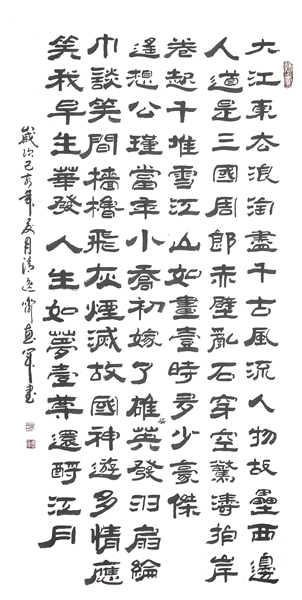 大江東去浪淘盡千古風流人物故壘西邊
人道是三國周郎赤壁亂石穿空驚濤拍岸
卷起千堆雪江山如畫壹時多少豪傑
遙想公瑾當年小喬初嫁了雄姿英發羽扇綸
巾談笑間檣櫓飛灰煙滅故國神遊多情應
笑我早生華發人生如夢壹尊還酹江月
歲次己亥年夏月清逸齋惠軍書